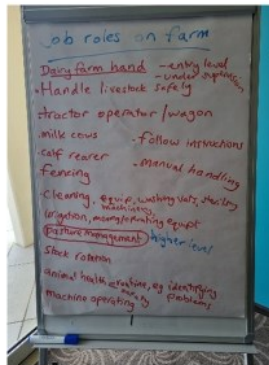 Job roles on farm
Dairy farm hand - entry level
- under supervision
• Handle livestock safely
• tractor operator/wagon
• milk cows
• follow instructions
• calf rearer
• manual handling
fencing
Cleaning, equip, washing vats,
machinery,
Irrigation, moving/operating equipt
pasture management higher level
Stock rotation
animal health, routine, eg identifying
problems
machine operating